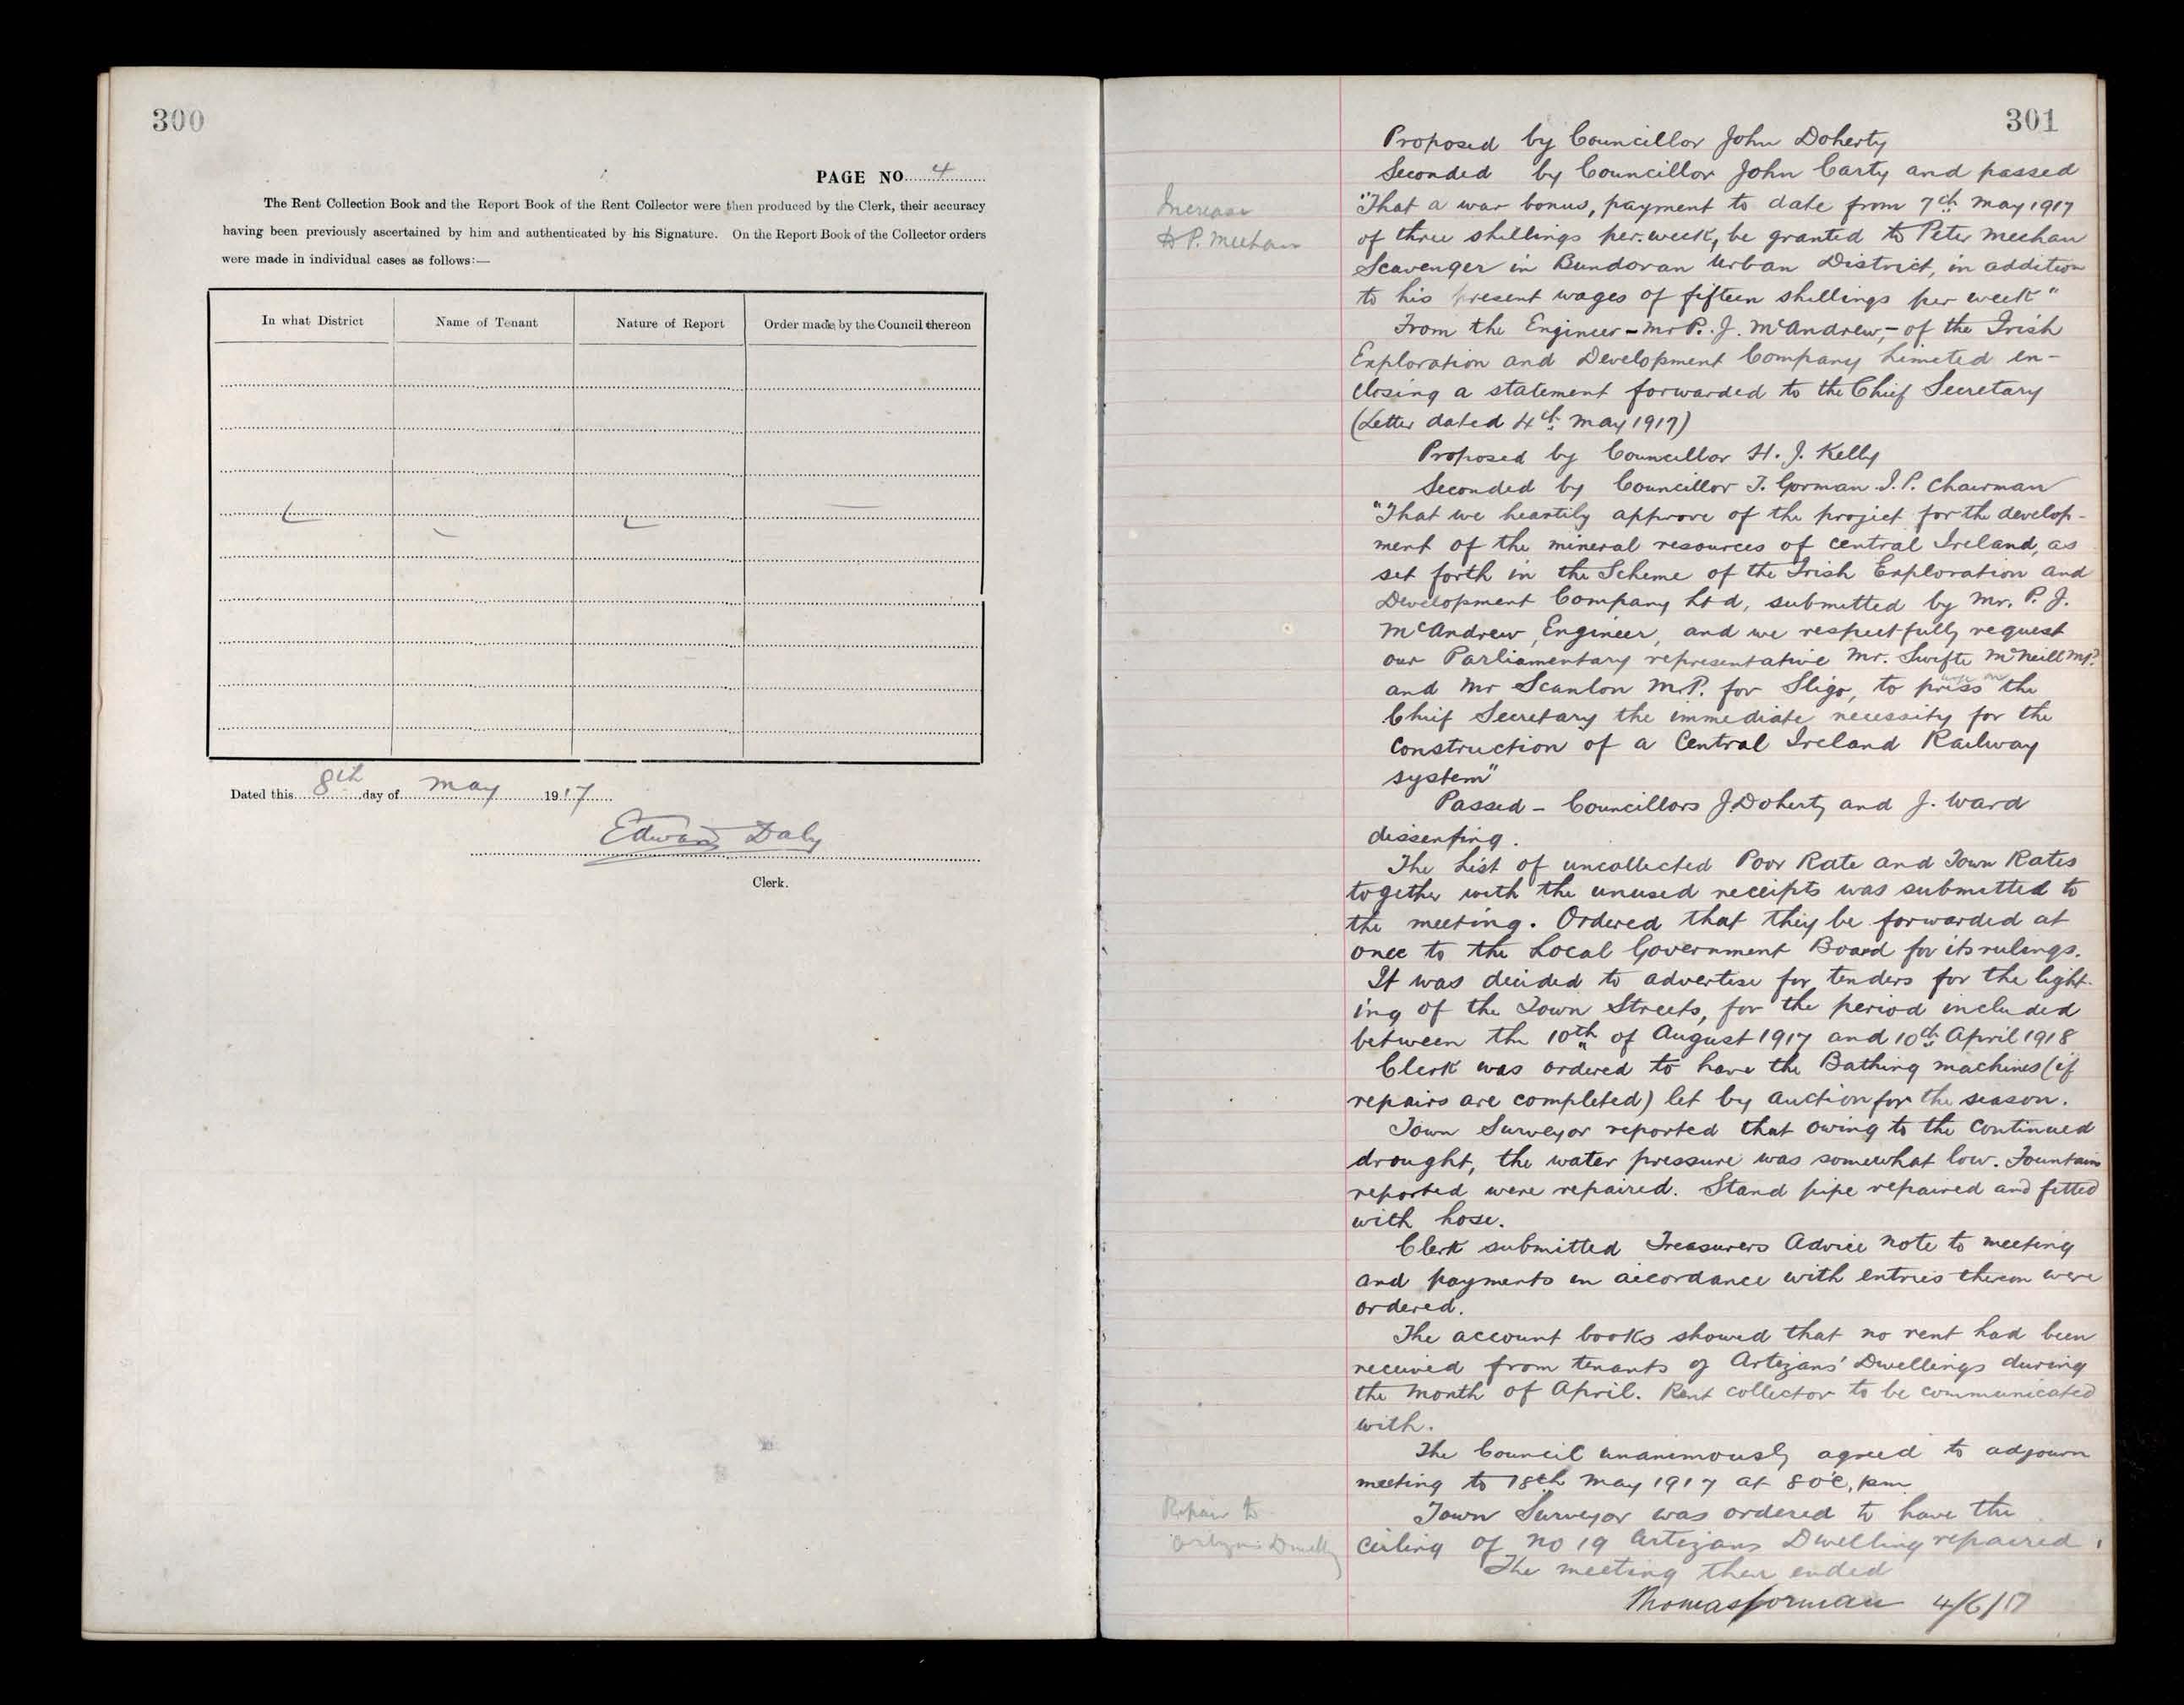 300
PAGE NO. 4
The Rent Collection Book and the Report Book of the Rent Collector were then produced by the Clerk, their accuracy
having been previously ascertained by him and authenticated by his Signature. On the Report Book of the Collector orders
were made in individual cases as follows:—
In what District Name of Tenant Nature of Report Order made by the Council thereon
Dated this 8th day of May 1917
Edward Daly
Clerk.
301
Proposed by Councillor John Doherty
Seconded by Councillor John Carty and passed
Increase
to P. Meehan
"That a war bonus, payment to date from 7th May 1917
of three shillings per week, be granted to Peter Meehan
Scavenger in Bundoran Urban District, in addition
to his present wages of fifteen shillings per week"
From the Engineer - Mr P. J. McAndrew, - of the Irish
Exploration and Development Company Limited en-
closing a statement forwarded to the Chief Secretary
(Letter dated 4th May 1917)
Proposed by Councillor H. J. Kelly
Seconded by Councillor T. Gorman J.P. Chairman
"That we heartily approve of the project for the develop-
ment of the mineral resources of central Ireland, as
set forth in the Scheme of the Irish Exploration and
Development Company Ltd, submitted by Mr. P. J.
McAndrew, Engineer, and we respectfully request
our Parliamentary representative Mr. Swifte McNeill M.P.
and Mr Scanlon M.P. for Sligo, to press upon the
Chief Secretary the immediate necessity for the
construction of a Central Ireland Railway
system"
Passed - Councillors J. Doherty and J. Ward
dissenting.
The List of uncollected Poor Rate and Town Rates
together with the unused receipts was submitted to
the meeting. Ordered that they be forwarded at
once to the Local Government Board for its rulings.
It was decided to advertise for tenders for the light-
ing of the Town Streets, for the period included
between the 10th of August 1917 and 10th April 1918
Clerk was ordered to have the Bathing machines (if
repairs are completed) let by auction for the season.
Town Surveyor reported that owing to the continued
drought, the water pressure was somewhat low. Fountains
reported were repaired. Stand pipe repaired and fitted
with hose.
Clerk submitted Treasurers Advice note to meeting
and payments in accordance with entries thereon were
ordered.
The account books showed that no rent had been
received from tenants of Artizans' Dwellings during
the month of April. Rent collector to be communicated
with.
The Council unanimously agreed to adjourn
meeting to 18th May 1917 at 8 o'c, pm
Repair to
Artizans Dwelling
Town Surveyor was ordered to have the
ceiling of No 19 Artizans Dwelling repaired.
The meeting then ended
Thomas Gorman 4/6/17